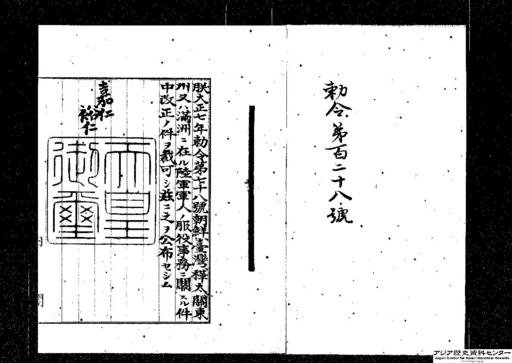 勅令第百二十八號
朕大正七年勅令第七十八號朝鮮臺灣樺太關東
州又ハ滿洲ニ在ル陸軍軍人ノ服役事務ニ關スル件
中改正ノ件ヲ裁可シ茲ニ之ヲ公布セシム
嘉仁
裕仁
天皇
御璽
アジア歴史資料センター
Japan Center for Asian Historical Records